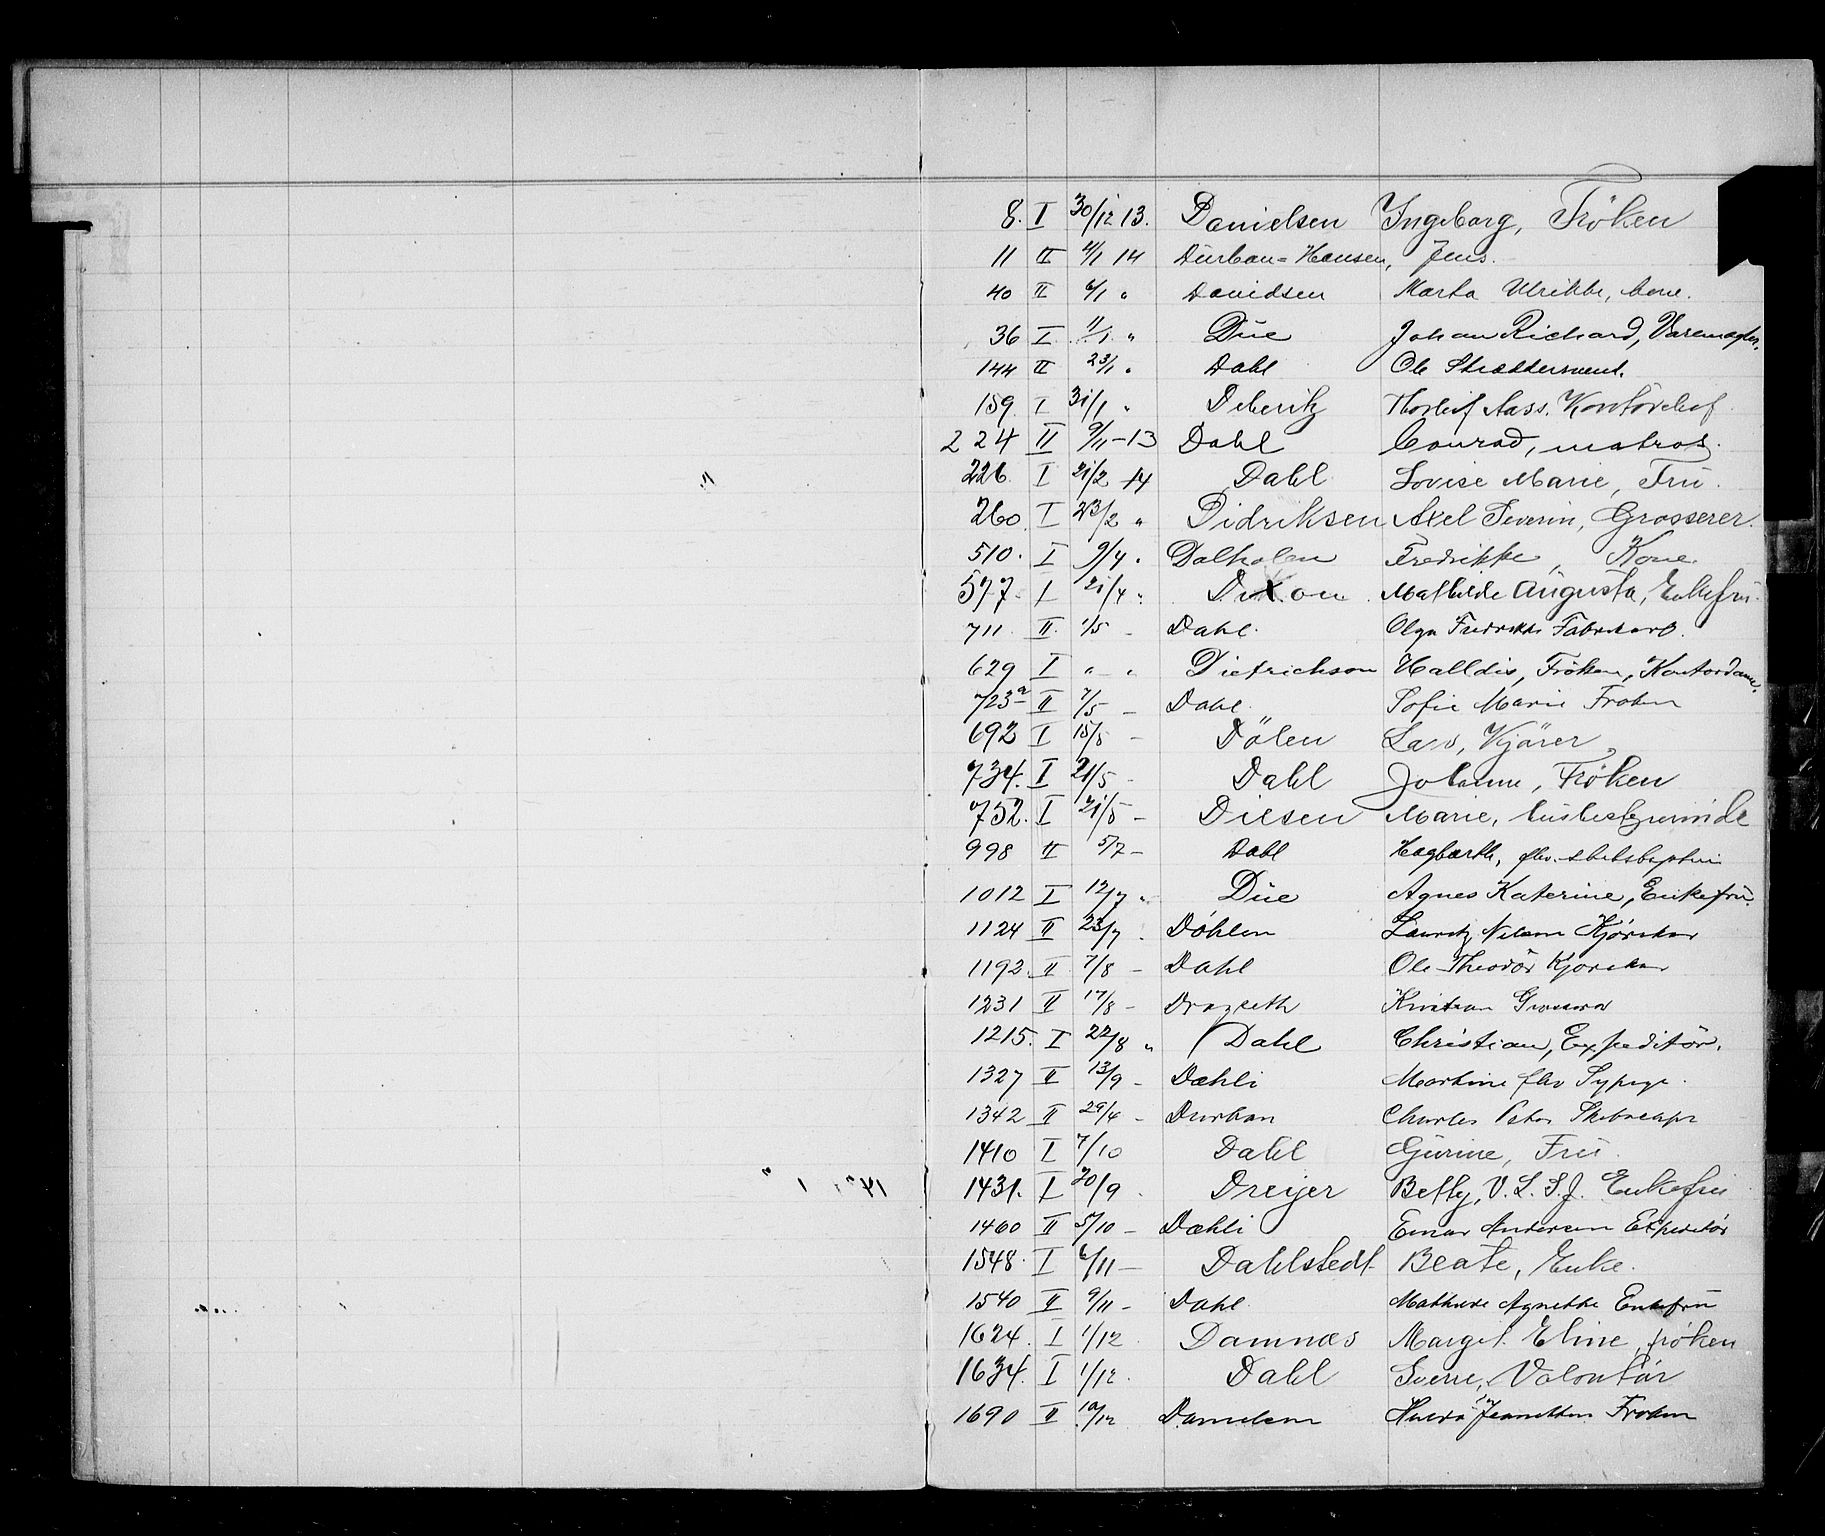 8. I 30/12 13. Danielsen Ingeborg, Fröken
11 II 4/1 14 Durban-Hansen, Jens.
40 II 6/1 " Davidsen Marta Ulrikke,
36 I 11/1 " Düe Johan Richard, Varemægler.
144 II 23/1 " Dahl Ole
159 I 31/1 " Deberitz Thorleif Aass. Kontorchef
224 II 9/11-13 Dahl Conrad, matros.
226. I 21/2 14 Dahl Lovise Marie, Fru.
260. I 23/2 " Didriksen Axel Severin, Grosserer.
510. I 9/4 " Dalholen Fredrikke, Kone.
577 I 21/4 " Dixon Mathilde Augusta, Enkefru.
711 II. 1/5 - Dahl. Olga Fredrikke
629 I " " Dietrichson Halldis, Fröken, Kontordame.
723a II 7/5 - Dahl. Sofie Marie Frøken
692 I 15/5 - Dölen Lars, Kjörer
734. I 21/5 - Dahl Johanne, Fröken
752. I I 21/5 - Diesen Marie, Husbestyrerinde
998 II 5/7 - Dahl Hagbarth,
1012 I 12/7 " Düe Agnes Katerine, Enkefru.
1124 II 23/7 . Döhlen Lauritz Nilsen Kjörekar
1192 II 7/8 - Dahl Ole Theodor Kjørekar
1231 II 17/8 - Dragseth Kristian Grosserer
1215. I 22/8 " Dahl Christian, Expeditör.
1327 II 13/9 - Dæhli Martine fhv Sypige.
1342 II 29/4 - Durban Charles Peter
1410 I 7/10 Dahl Gurine, Fru.
1431. I 30/9 . Dreyer Betty, V. L. S. J. Enkefru
1460 II 5/10 - Dæhli Einar Andersen Expeditör
1548. I 6/11 - Dahlstedt Beate, Enke.
1540 II 9/11 - Dahl Mathilde Agnethe Enkefru
1624. I 1/12 . Damnæs Margit Eline, fröken
1634. I 1/12. Dahl Sverre, Volontör
1690 II 10/12 Danielsen Hulda Jeanette Frøken